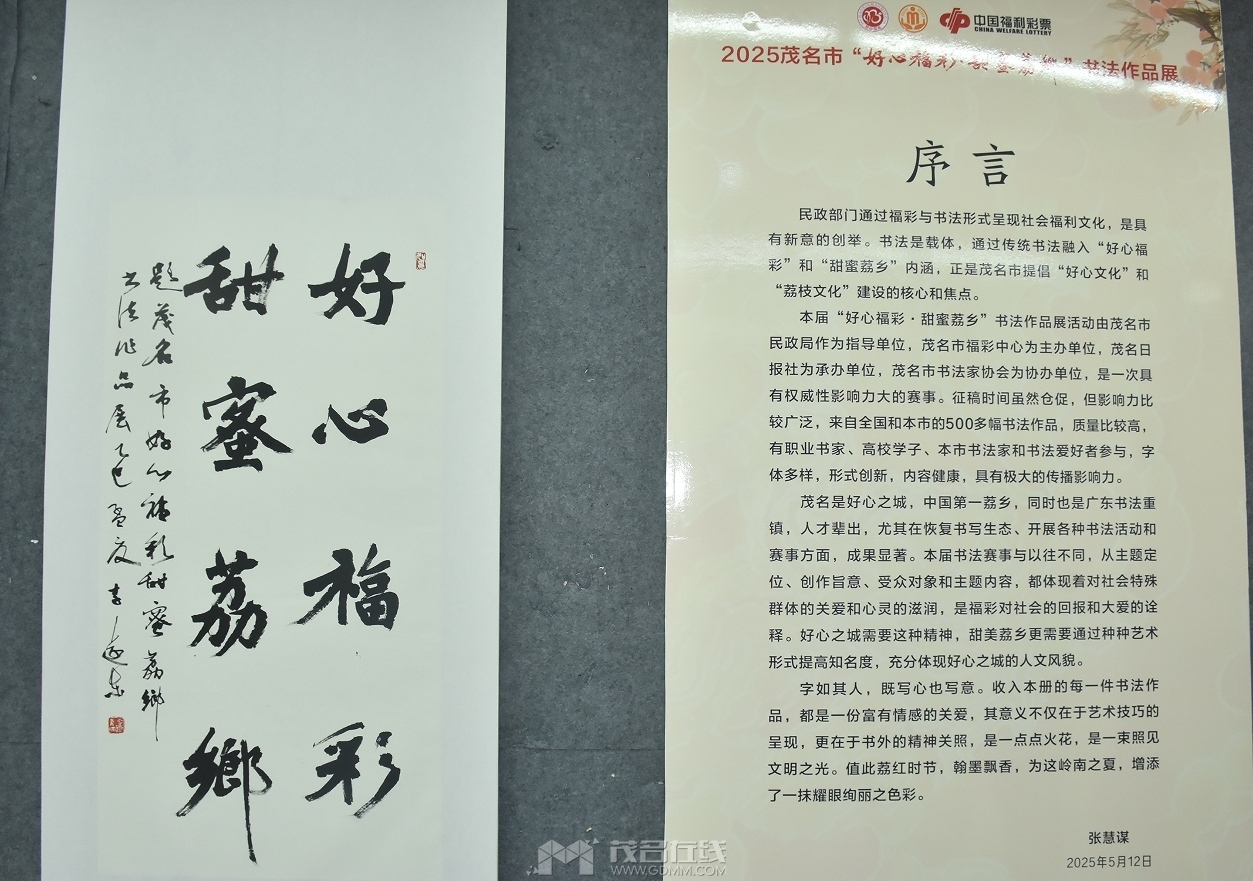 好心福彩
甜蜜荔鄉
题茂名市好心福彩甜蜜荔鄉
书法作品展乙巳孟夏李
中国福利彩票
CHINA WELFARE LOTTERY
2025茂名市“好心福彩·甜蜜荔鄉”书法作品展
序言
民政部门通过福彩与书法形式呈现社会福利文化，是具
有新意的创举。书法是载体，通过传统书法融入“好心福
彩”和“甜蜜荔乡”内涵，正是茂名市提倡“好心文化”和
“荔枝文化”建设的核心和焦点。
本届“好心福彩·甜蜜荔乡”书法作品展活动由茂名市
民政局作为指导单位，茂名市福彩中心为主办单位，茂名日
报社为承办单位，茂名市书法家协会为协办单位，是一次具
有权威性影响力大的赛事。征稿时间虽然仓促，但影响力比
较广泛，来自全国和本市的500多幅书法作品，质量比较高，
有职业书家、高校学子、本市书法家和书法爱好者参与，字
体多样，形式创新，内容健康，具有极大的传播影响力。
茂名是好心之城，中国第一荔乡，同时也是广东书法重
镇，人才辈出，尤其在恢复书写生态、开展各种书法活动和
赛事方面，成果显著。本届书法赛事与以往不同，从主题定
位、创作旨意、受众对象和主题内容，都体现着对社会特殊
群体的关爱和心灵的滋润，是福彩对社会的回报和大爱的诠
释。好心之城需要这种精神，甜美荔乡更需要通过种种艺术
形式提高知名度，充分体现好心之城的人文风貌。
字如其人，既写心也写意。收入本册的每一件书法作
品，都是一份富有情感的关爱，其意义不仅在于艺术技巧的
呈现，更在于书外的精神关照，是一点点火花，是一束照见
文明之光。值此荔红时节，翰墨飘香，为这岭南之夏，增添
了一抹耀眼绚丽之色彩。
张慧谋
2025年5月12日
茂名在线
WWW.GDMM.COM